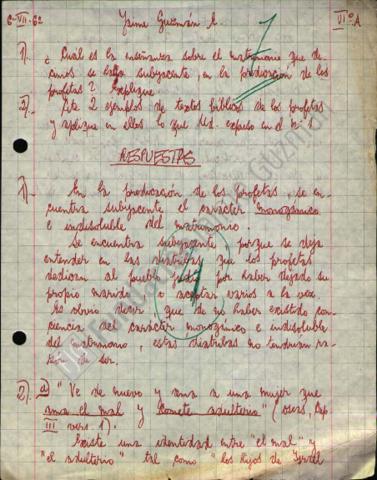 6-VII-62 Jaime Guzmán E. VIº A
7
1). ¿Cuál es la enseñanza sobre el matrimonio que de-
cimos se halla subyacente, en la predicación de los
profetas? Explique.
2). Cite 2 ejemplos de textos bíblicos de los profetas
y aplique en ellos lo que Ud. expuso en el nº 1
RESPUESTAS
1). En la predicación de los profetas, se en-
cuentra subyacente el carácter monogámico
e indisoluble del matrimonio.
Se encuentra subyacente porque se deja
entender en las diatribas que los profetas
dedican al pueblo judío por haber dejado su
propio marido o aceptar varios a la vez.
Es obvio decir que de no haber existido con-
ciencia del carácter monogámico e indisoluble
del matrimonio, estas diatribas no tendrían ra-
zón de ser.
2). a) "Ve de nuevo y ama a una mujer que
ama el mal y comete adulterio" (Oseas, Cap
III vers 1).
Existe una identidad entre "el mal" y
"el adulterio" tal como "los hijos de Israel